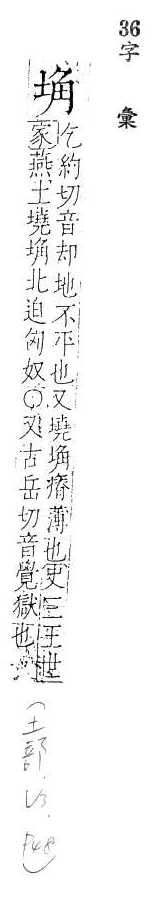 36 字彙
埆
乞約切音却地不平也又墝埆瘠薄也史三王世
家燕土墝埆北迫匈奴○又古岳切音覺獄也
(土部.
P48)